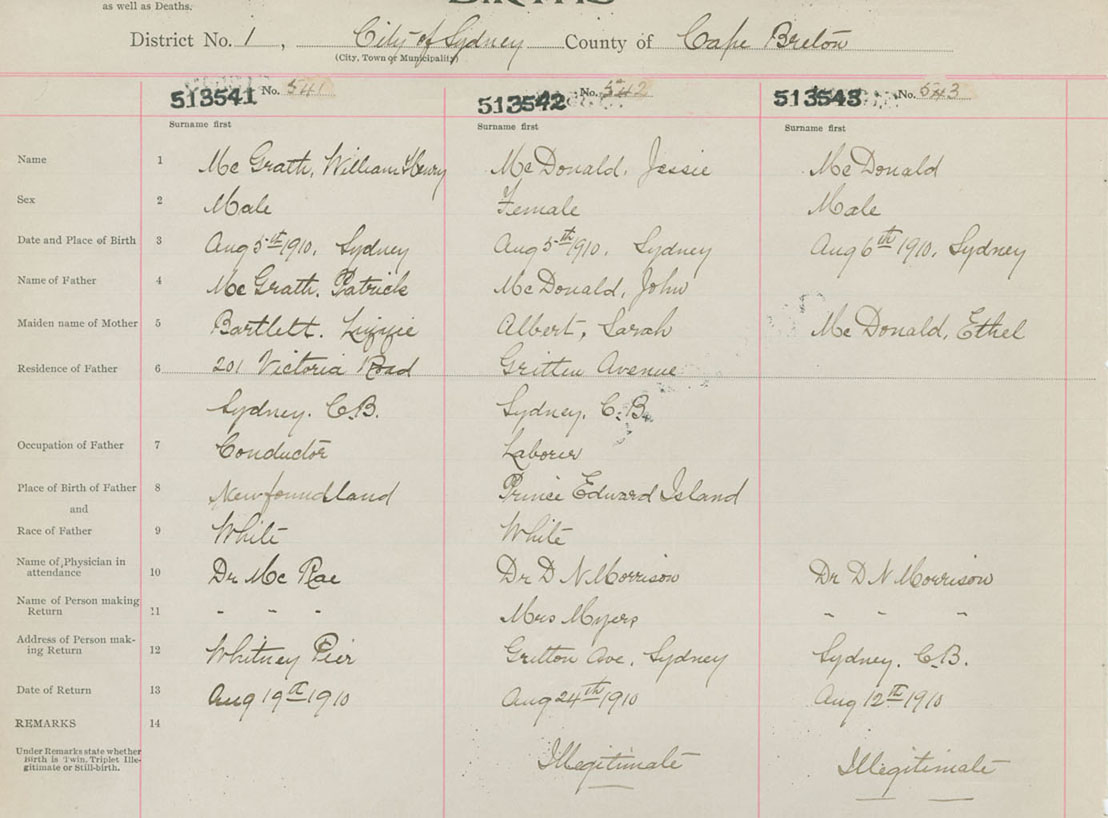 as well as Deaths.
BIRTHS
District No. 1, City of Sydney County of Cape Breton
(City, Town or Municipality)
513541 No. 541 513542 No. 542 513543 No. 543
Surname first Surname first Surname first
Name 1 Mc Grath, William Henry McDonald, Jessie McDonald
Sex 2 Male Female Male
Date and Place of Birth 3 Aug 5th 1910, Sydney Aug 5th 1910, Sydney Aug 6th 1910, Sydney
Name of Father 4 Mc Grath, Patrick McDonald, John
Maiden name of Mother 5 Bartlett, Lizzie Albert, Sarah Mc Donald, Ethel
Residence of Father 6 201 Victoria Road Gritten Avenue
Sydney. C.B. Sydney, C.B.
Occupation of Father 7 Conductor Laborer
Place of Birth of Father 8 Newfoundland Prince Edward Island
and
Race of Father 9 White White
Name of Physician in 10 Dr Mc Rae Dr D N Morrison Dr D N Morrison
attendance
Name of Person making 11 - - - Mrs Myers - - -
Return
Address of Person mak- 12 Whitney Pier Gritton Ave, Sydney Sydney. C.B.
ing Return
Date of Return 13 Aug 19th 1910 Aug 24th 1910 Aug 12th 1910
REMARKS 14
Under Remarks state whether Illegitimate Illegitimate
Birth is Twin, Triplet Ille-
gitimate or Still-birth.